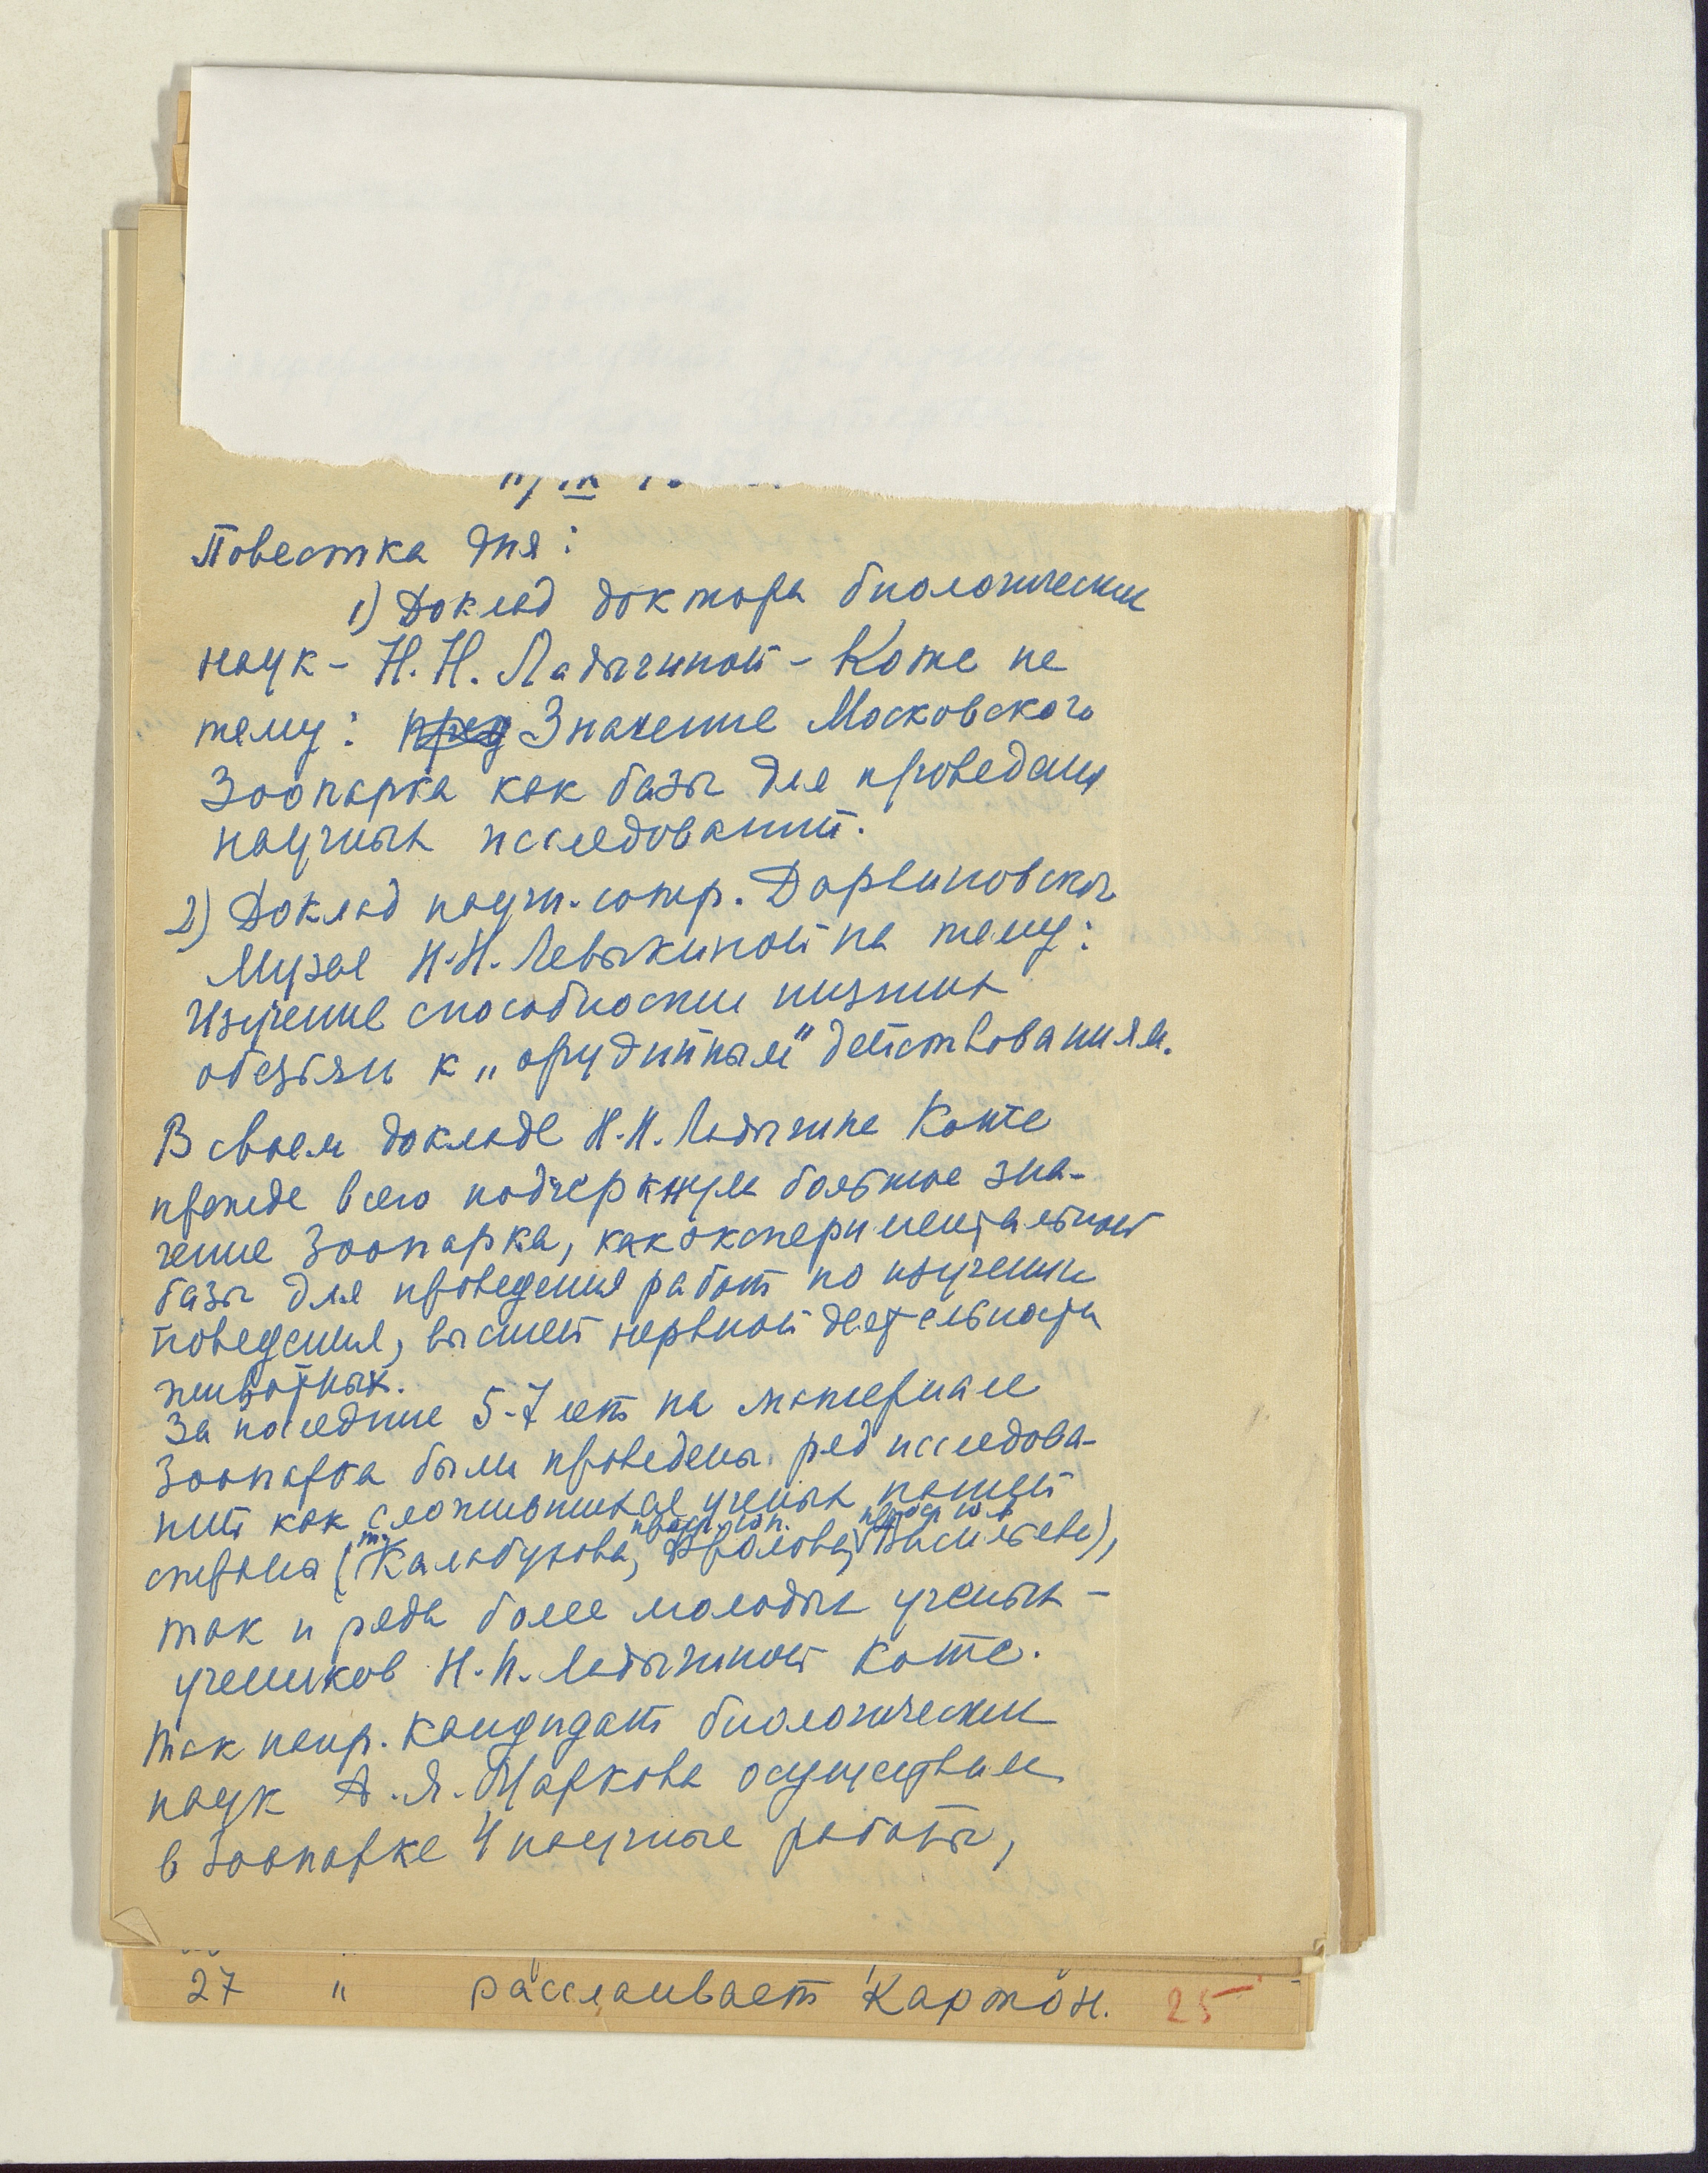 Повестка дня:
1) Доклад доктора биологических
наук - Н.Н. Ладыгиной - Котс на
тему: Значение Московского
Зоопарка как базы для проведения
научных исследований.
2) Доклад научн. сотр. Дарвиновского
Музея Н.Н. Левыкиной на тему:
Изучение способности низших
обезьян к „орудийным" действованиям.
В своем докладе Н.Н. Ладыгина Котс
прежде всего подчеркнула большое зна-
чение Зоопарка, как экспериментальной
базы для проведения работ по изучению
поведения, высшей нервной деятельности
животных.
За последние 5-7 лет на материале
Зоопарка были проведены ряд исследова-
ний как сложившихся ученых нашей
страны (Калабухова, Фролова, Васильева),
так и ряда более молодых ученых -
учеников Н.Н. Ладыгиной Котс.
Так напр. кандидат биологических
наук А.Я. Маркова осуществила
в Зоопарке 4 научные работы,
27 " расслаивает картон. 25